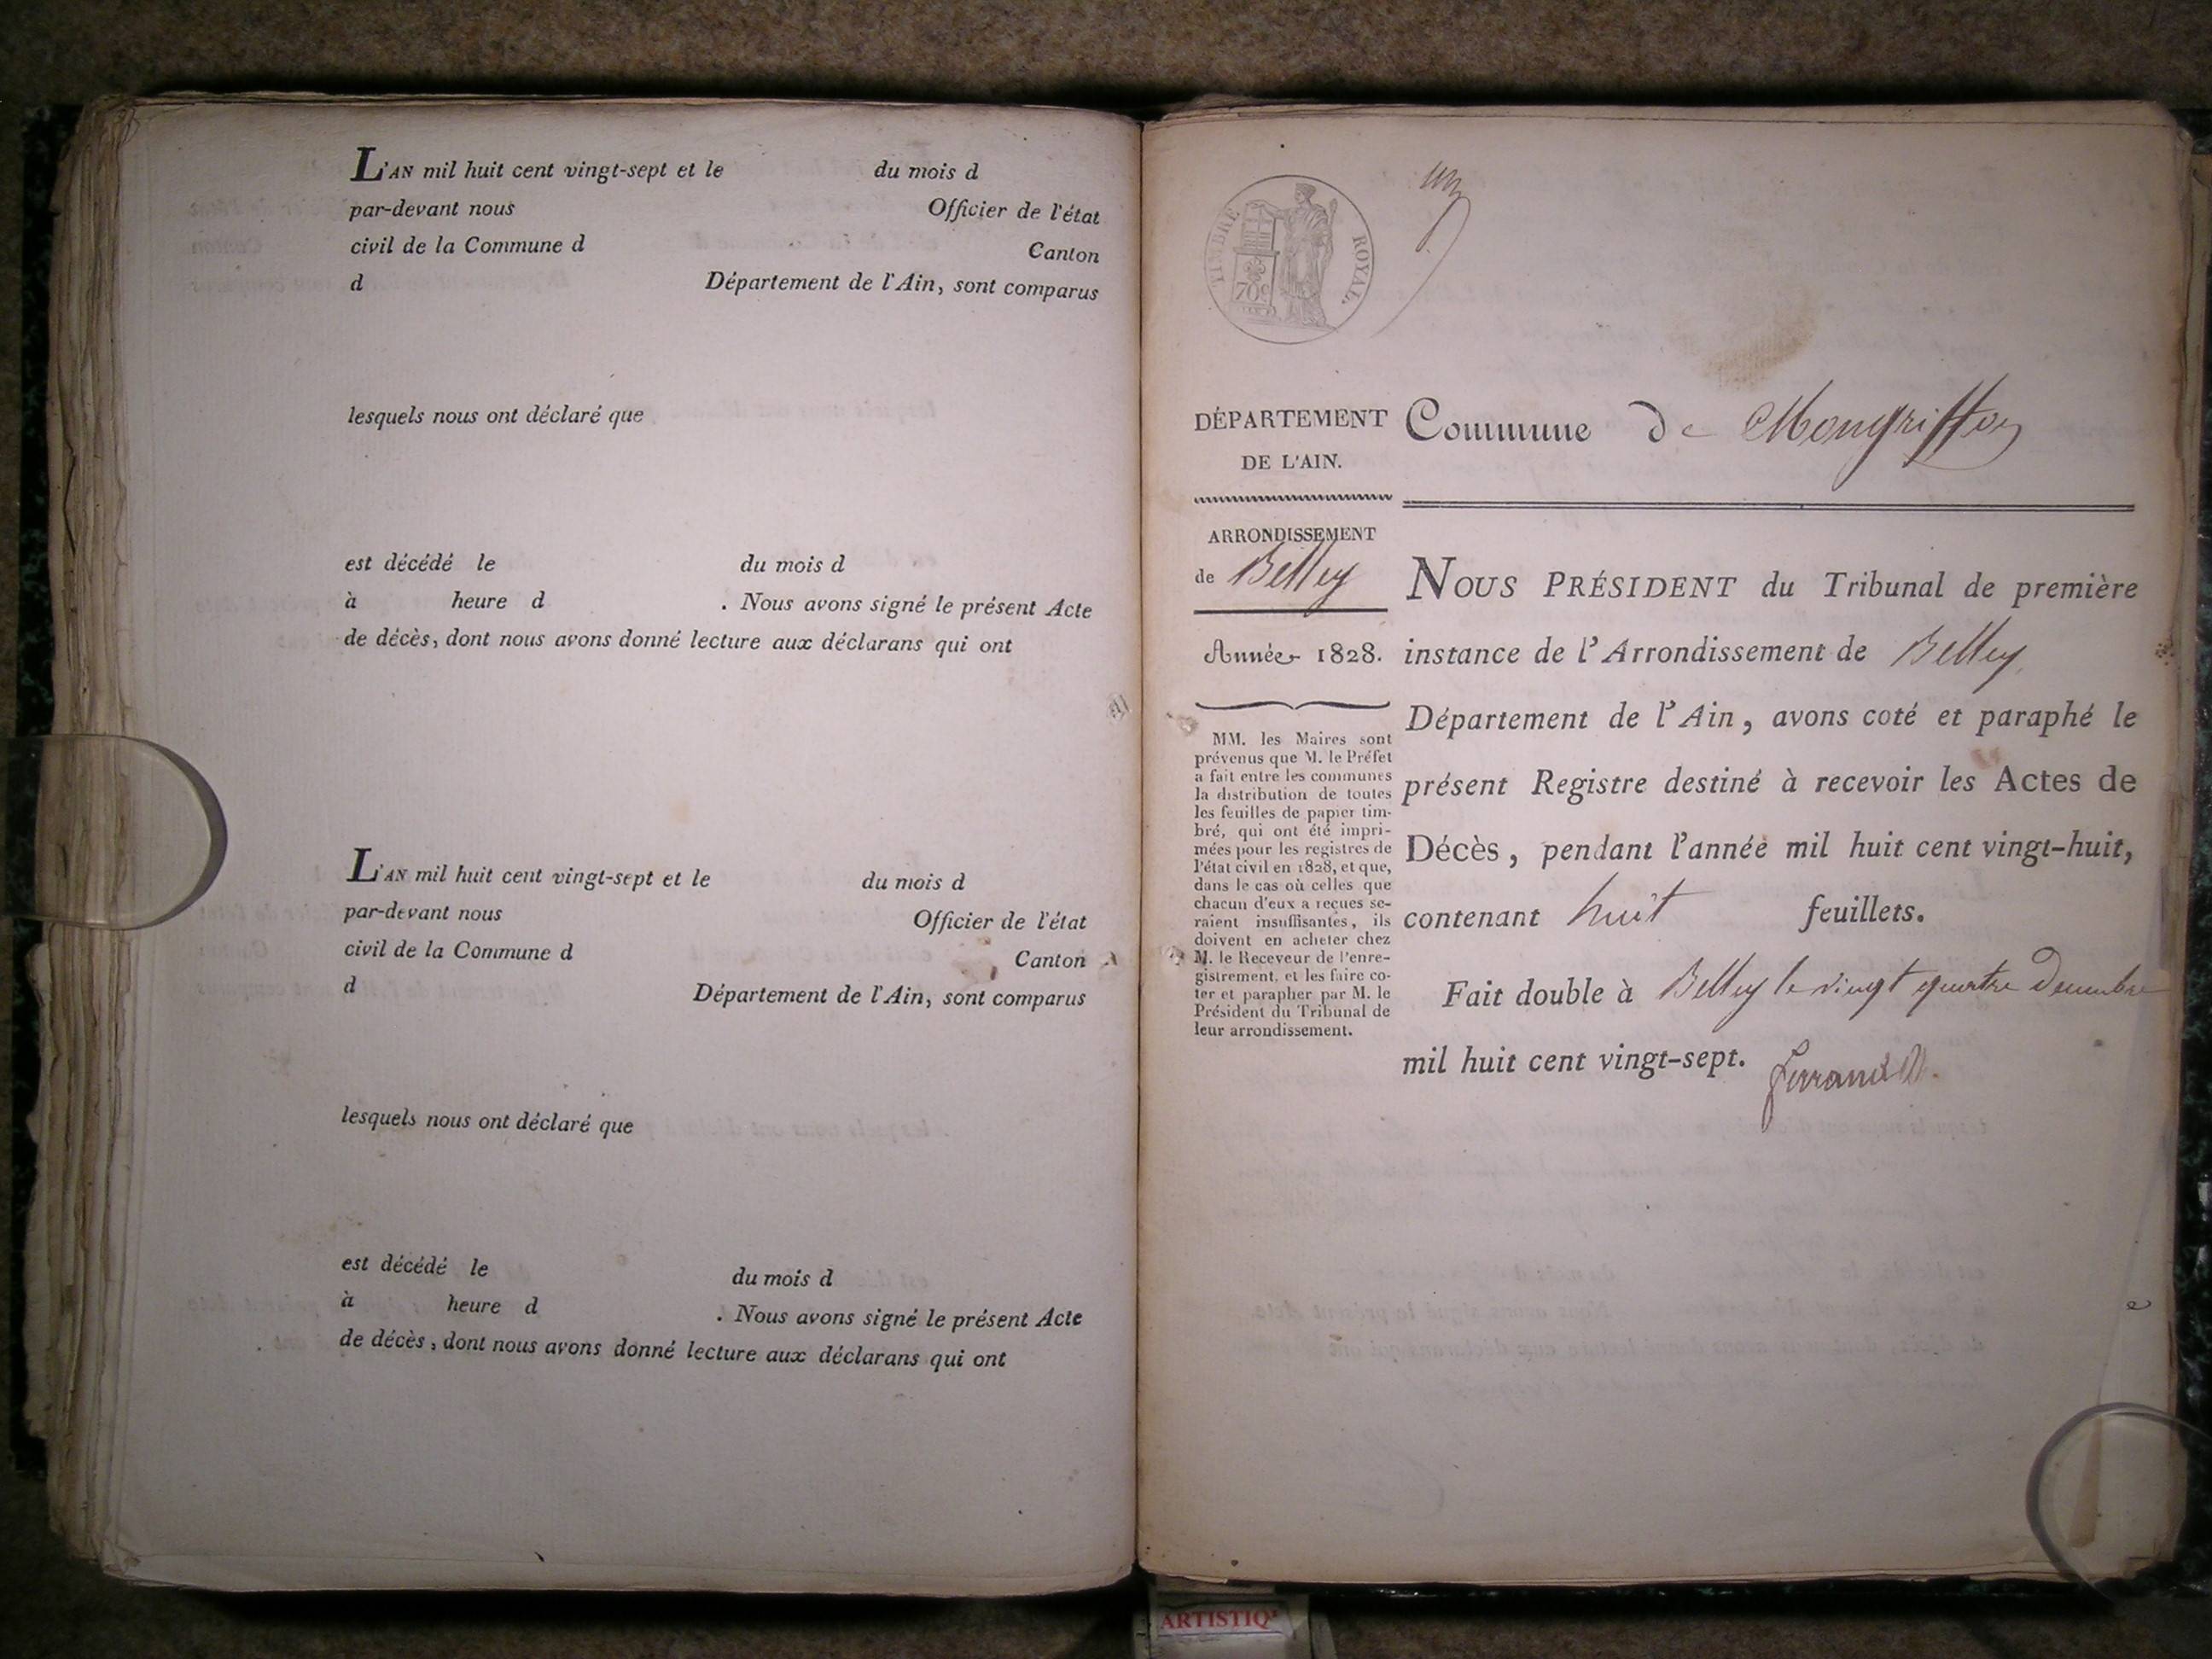 L'AN mil huit cent vingt-sept et le du mois d
par-devant nous Officier de l'état
civil de la Commune d Canton
d Département de l'Ain, sont comparus
lesquels nous ont déclaré que
est décédé le du mois d
à heure d . Nous avons signé le présent Acte
de décès, dont nous avons donné lecture aux déclarans qui ont
L'AN mil huit cent vingt-sept et le du mois d
par-devant nous Officier de l'état
civil de la Commune d Canton
d Département de l'Ain, sont comparus
lesquels nous ont déclaré que
est décédé le du mois d
à heure d . Nous avons signé le présent Acte
de décès, dont nous avons donné lecture aux déclarans qui ont
TIMBRE ROYAL.
70c
un
DÉPARTEMENT
DE L'AIN.
ARRONDISSEMENT
de Belley
Année 1828.
MM. les Maires sont
prévenus que M. le Préfet
a fait entre les communes
la distribution de toutes
les feuilles de papier tim-
bré, qui ont été impri-
mées pour les registres de
l'état civil en 1828, et que,
dans le cas où celles que
chacun d'eux a reçues se-
raient insuffisantes, ils
doivent en acheter chez
M. le Receveur de l'enre-
gistrement, et les faire co-
ter et parapher par M. le
Président du Tribunal de
leur arrondissement.
Commune de Mongriffon
NOUS PRÉSIDENT du Tribunal de première
instance de l'Arrondissement de Belley
Département de l'Ain, avons coté et paraphé le
présent Registre destiné à recevoir les Actes de
Décès, pendant l'année mil huit cent vingt-huit,
contenant huit feuillets.
Fait double à Belley le vingt quatre Decembre
mil huit cent vingt-sept.
ARTISTIQ